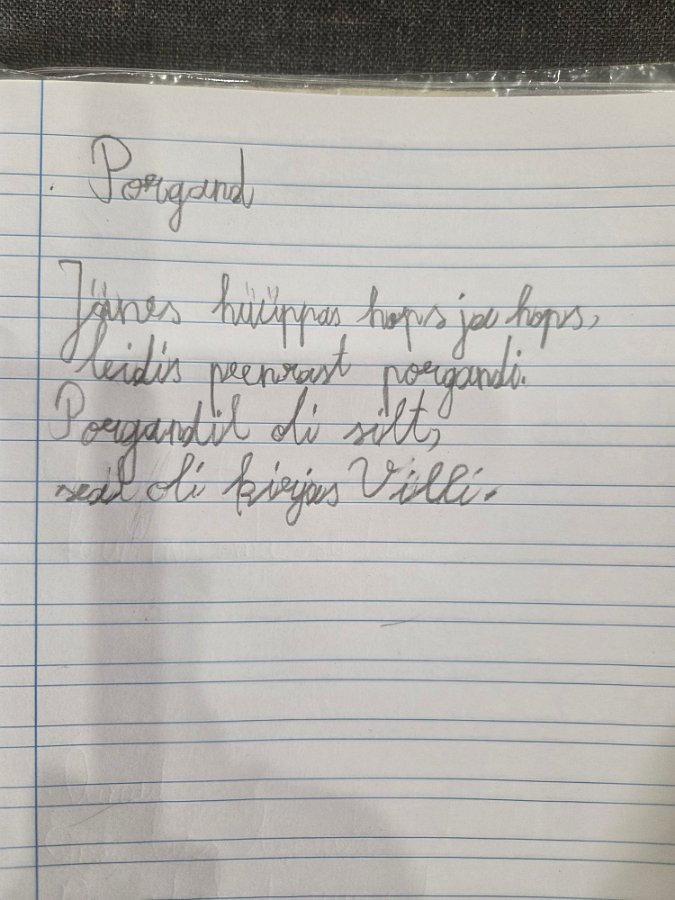 Porgand
Jänes hüüppas hops ja hops,
leidis peenrast porgandi.
Porgandil oli silt,
seal oli kirjas Villi.